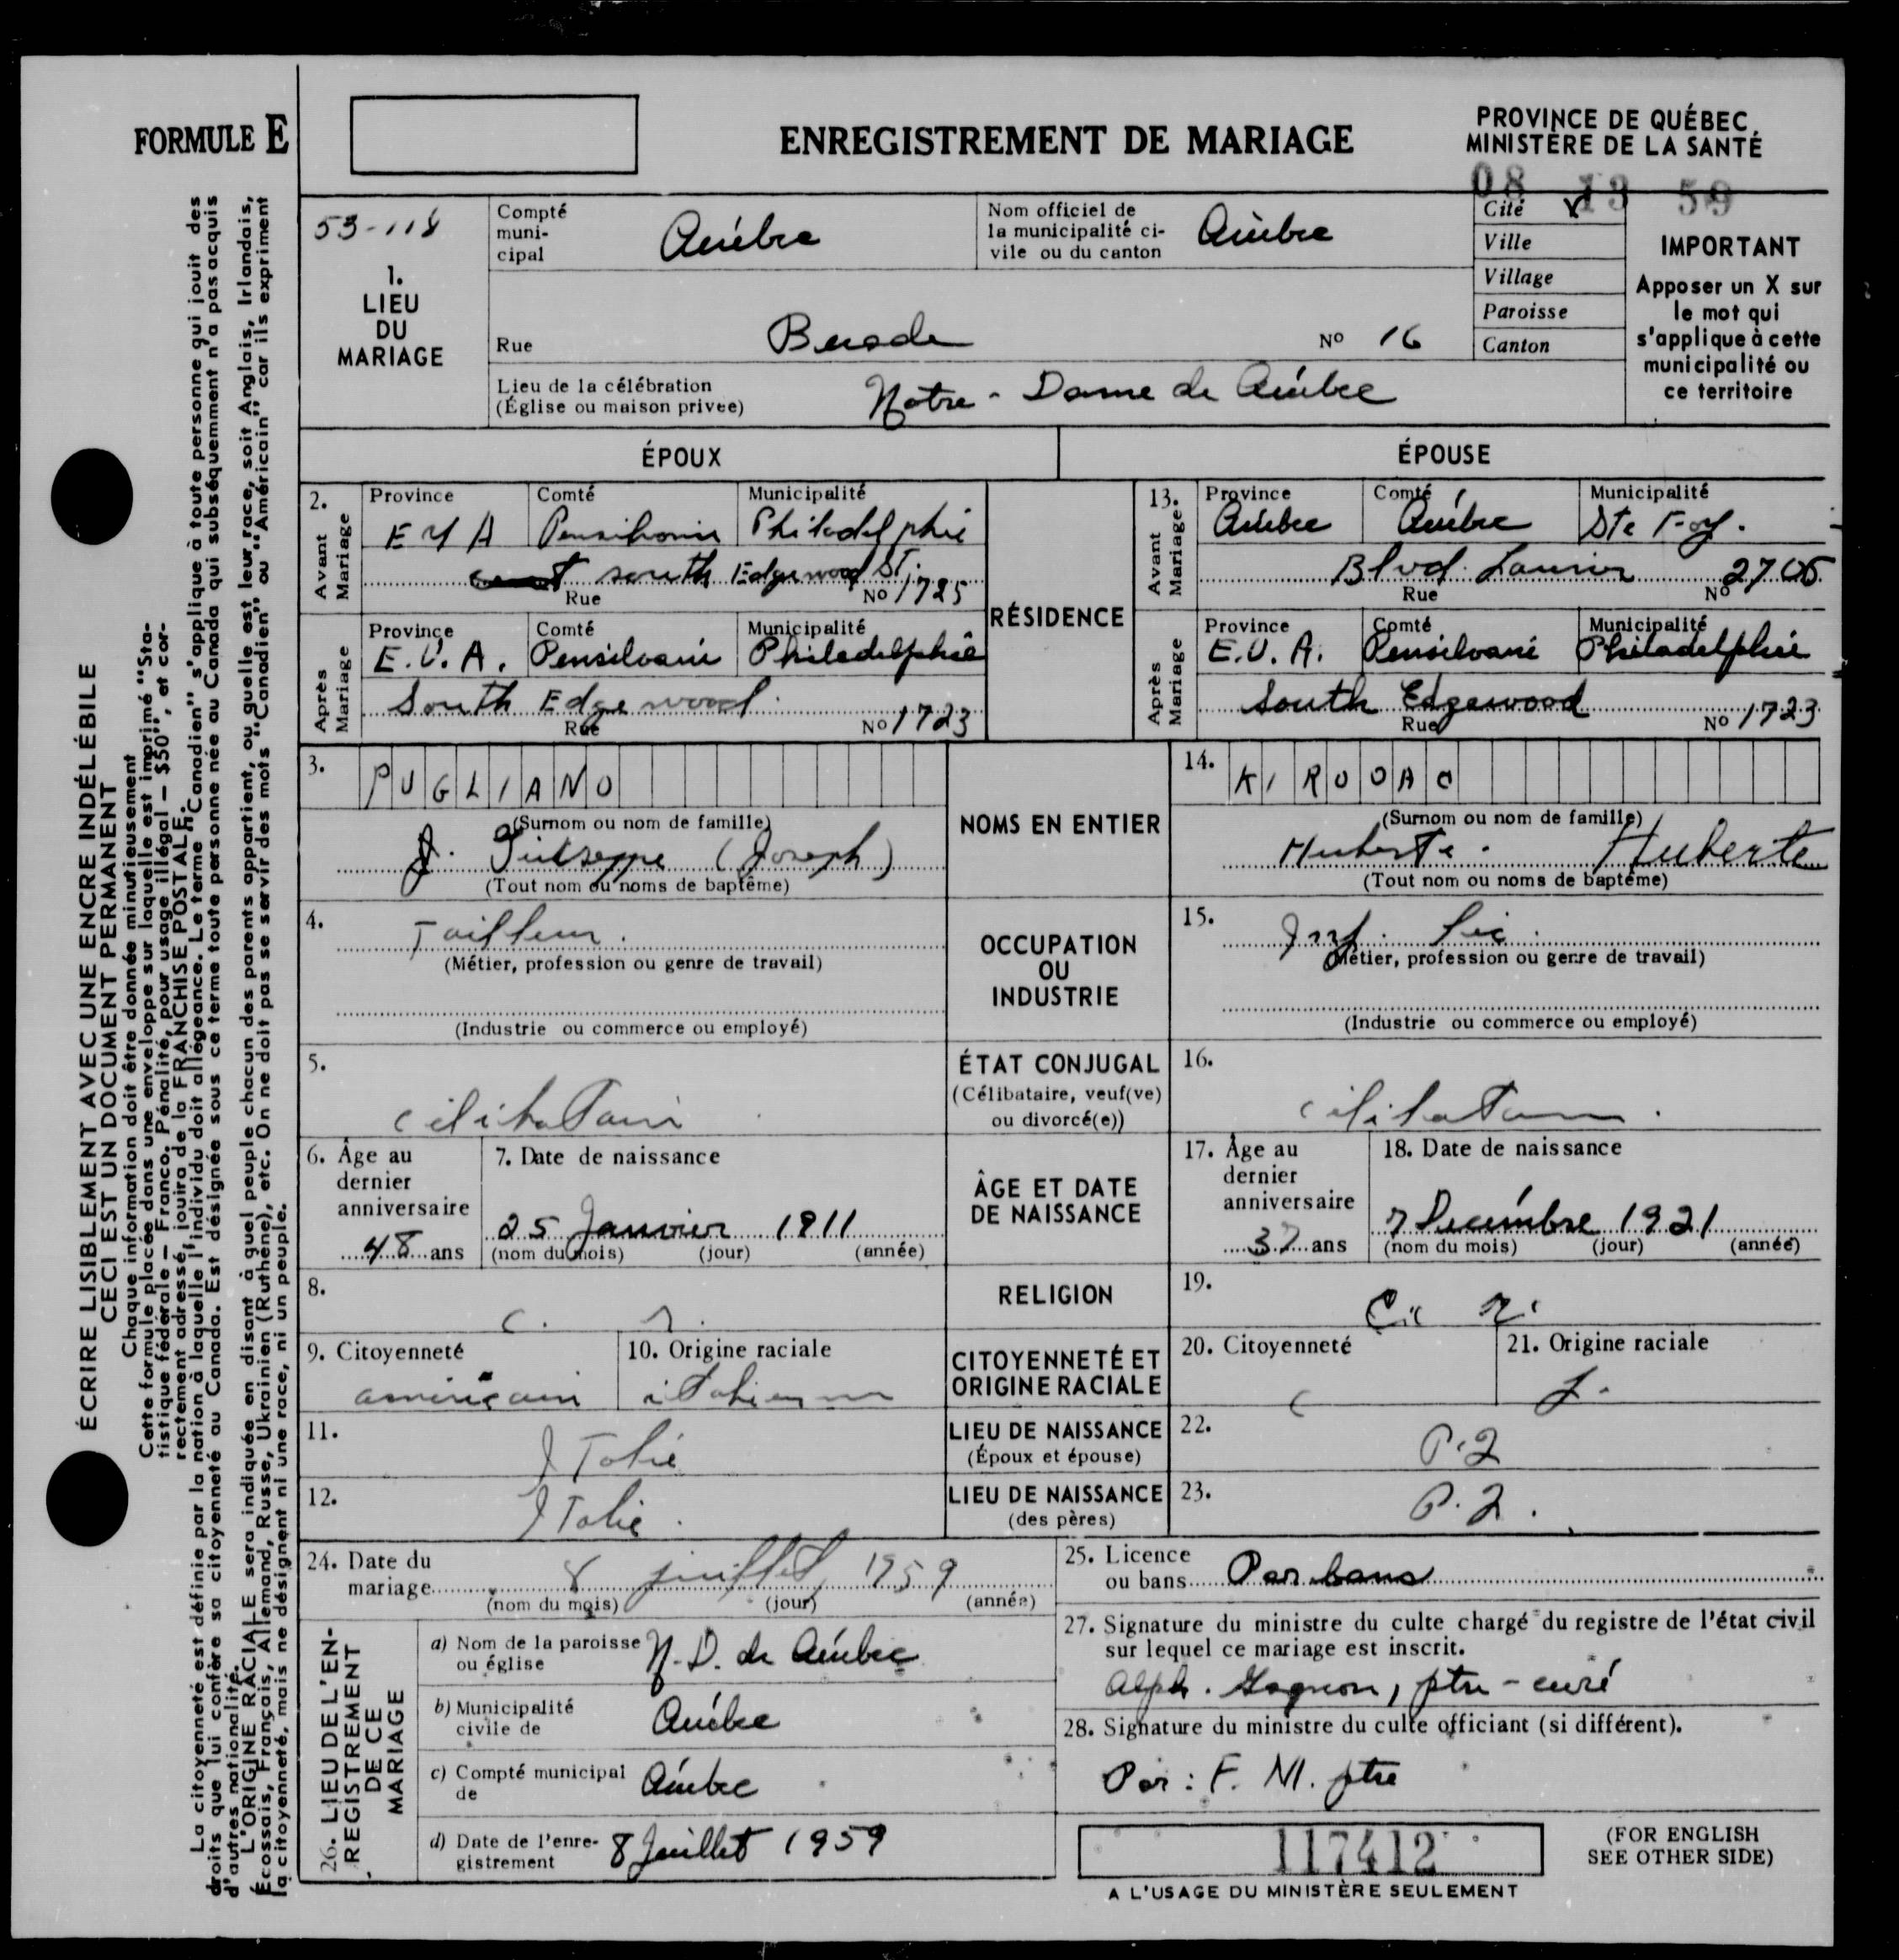 FORMULE E
ENREGISTREMENT DE MARIAGE
PROVINCE DE QUÉBEC
MINISTÈRE DE LA SANTÉ
08 13 59
53-118
1.
LIEU
DU
MARIAGE
Compté
muni-
cipal
Québec
Nom officiel de
la municipalité ci-
vile ou du canton
Québec
Cité X
Ville
Village
Paroisse
Canton
IMPORTANT
Apposer un X sur
le mot qui
s'applique à cette
municipalité ou
ce territoire
Rue Buade No 16
Lieu de la célébration
(Église ou maison privee)
Notre-Dame de Québec
ÉPOUX
ÉPOUSE
RÉSIDENCE
2.
Avant
Mariage
Province Comté Municipalité
E U A Philadelphie
south Edgewood St.
Rue No 1725
Après
Mariage
Province Comté Municipalité
E.U.A. Pensilvanie Philadelphie
South Edgewood
Rue No 1723
13.
Avant
Mariage
Province Comté Municipalité
Québec Québec Ste Foy.
Blvd. Laurier 2705
Rue No
Après
Mariage
Province Comté Municipalité
E.U.A. Pensilvanie Philadelphie
South Edgewood
Rue No 1723
3.
PUGLIANO
(Surnom ou nom de famille)
J. Guiseppe (Joseph)
(Tout nom ou noms de baptême)
NOMS EN ENTIER
14.
KIROOAC
(Surnom ou nom de famille)
Huberte. Huberte
(Tout nom ou noms de baptême)
4.
Tailleur.
(Métier, profession ou genre de travail)
(Industrie ou commerce ou employé)
OCCUPATION
OU
INDUSTRIE
15.
Inf. Lic.
(Métier, profession ou genre de travail)
(Industrie ou commerce ou employé)
5.
célibataire
ÉTAT CONJUGAL
(Célibataire, veuf(ve)
ou divorcé(e))
16.
célibataire.
6. Âge au
dernier
anniversaire
48 ans
7. Date de naissance
25 Janvier 1911
(nom du mois) (jour) (année)
ÂGE ET DATE
DE NAISSANCE
17. Âge au
dernier
anniversaire
37 ans
18. Date de naissance
7 Decémbre 1921
(nom du mois) (jour) (année)
8.
c. r.
RELIGION
19.
C. r.
9. Citoyenneté
américain
10. Origine raciale
italienne
CITOYENNETÉ ET
ORIGINE RACIALE
20. Citoyenneté
c
21. Origine raciale
f.
11.
Italie
LIEU DE NAISSANCE
(Époux et épouse)
22.
P.2
12.
Italie.
LIEU DE NAISSANCE
(des pères)
23.
P.2.
24. Date du
mariage 8 juillet 1959
(nom du mois) (jour) (année)
25. Licence
ou bans Par bans
26. LIEU DE L'EN-
REGISTREMENT
DE CE
MARIAGE
a) Nom de la paroisse
ou église
N.-D. de Québec
b) Municipalité
civile de
Québec
c) Compté municipal
de
Québec
d) Date de l'enre-
gistrement
8 Juillet 1959
27. Signature du ministre du culte chargé du registre de l'état civil
sur lequel ce mariage est inscrit.
Alph. Gagnon, ptre-curé
28. Signature du ministre du culte officiant (si différent).
Par: F. M. ptre
117412
A L'USAGE DU MINISTÈRE SEULEMENT
(FOR ENGLISH
SEE OTHER SIDE)
ÉCRIRE LISIBLEMENT AVEC UNE ENCRE INDÉLÉBILE
CECI EST UN DOCUMENT PERMANENT
Chaque information doit être donnée minutieusement
Cette formule placée dans une enveloppe sur laquelle est imprimé "Sta-
tistique fédérale – Franco. Pénalité, pour usage illégal – $50", et cor-
rectement adressé, jouira de la FRANCHISE POSTALE.
La citoyenneté est définie par la nation à laquelle l'individu doit allégeance. Le terme "Canadien" s'applique à toute personne qui jouit des
droits que lui confère sa citoyenneté au Canada. Est désignée sous ce terme toute personne née au Canada qui subséquemment n'a pas acquis
d'autres nationalité.
L'ORIGINE RACIALE sera indiquée en disant à quel peuple chacun des parents appartient, ou quelle est leur race, soit Anglais, Irlandais,
Écossais, Français, Allemand, Russe, Ukrainien (Ruthène), etc. On ne doit pas se servir des mots "Canadien" ou "Américain" car ils expriment
la citoyenneté, mais ne désignent ni une race, ni un peuple.